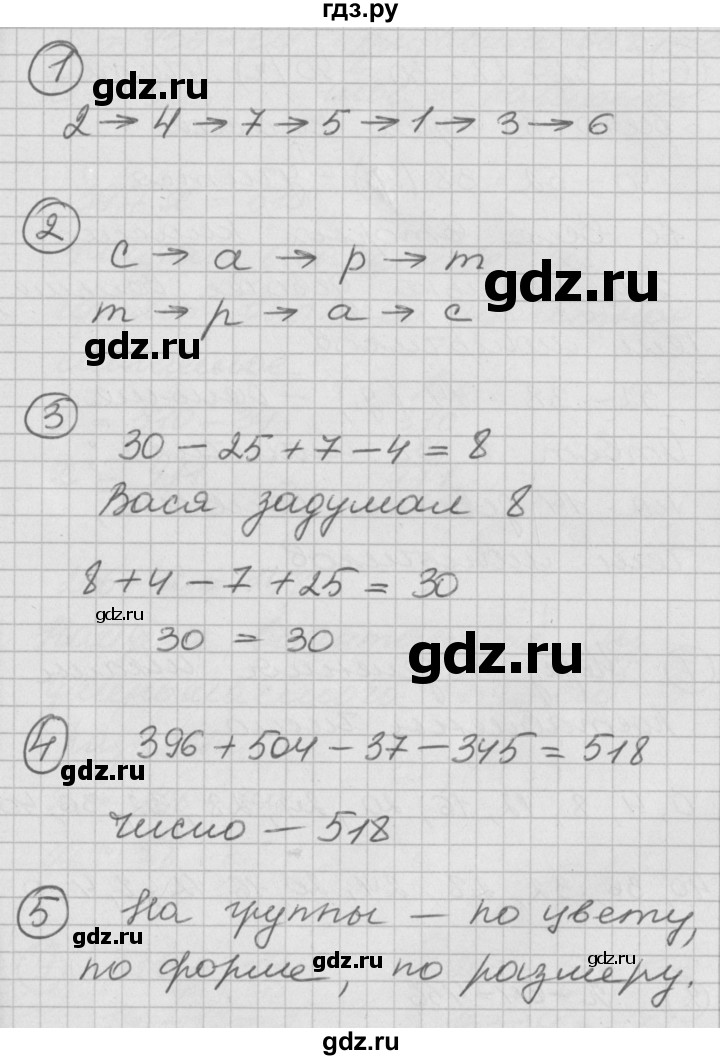 гдз.ру
1
gdz.ru
2 → 4 → 7 → 5 → 1 → 3 → 6
2
с → а → р → т
gdz.ru
т → р → а → с
gdz.ru
3
30 - 25 + 7 - 4 = 8
Вася задумал 8
8 + 4 - 7 + 25 = 30
gdz.ru
30 = 30
gdz.ru
4
396 + 504 - 37 - 345 = 518
gdz.ru
Число - 518
5
На группы - по цвету,
gdz.ru
gdz.ru
по форме, по размеру.
gdz.ru
gdz.ru
gdz.ru